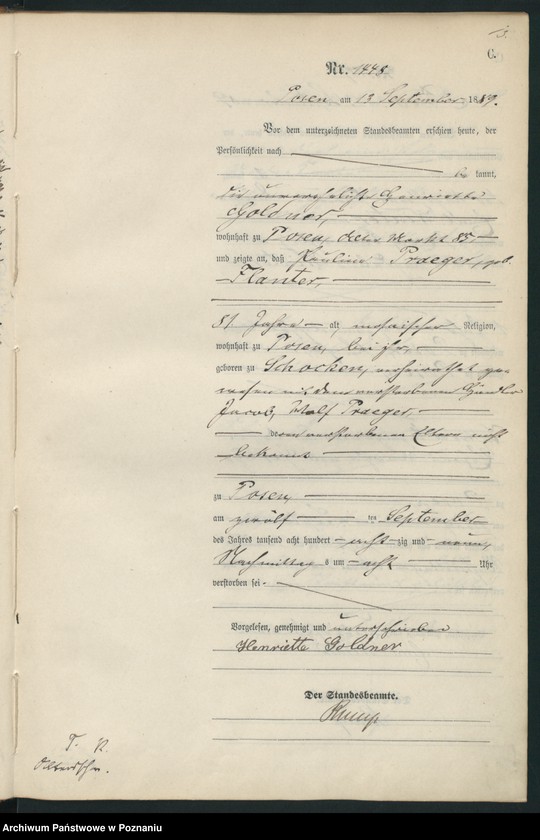 C.
Nr. 1448
Posen am 13 September 1889.
Vor dem unterzeichneten Standesbeamten erschien heute, der
Persönlichkeit nach
be kannt,
die unverehelichte Henriette
Goldner,
wohnhaft zu Posen, Alter Markt 85,
und zeigte an, daß Pauline Praeger, geb.
Flanter,
81 Jahre alt, mosaischer Religion,
wohnhaft zu Posen, bei ihr,
geboren zu Schocken, verheirathet ge-
wesen mit dem verstorbenen Händler
Jacob, Wolf Praeger,
deren verstorbene Eltern nicht
bekannt
zu Posen
am zwölf ten September
des Jahres tausend acht hundert acht zig und neun,
Nachmittag s um acht Uhr
verstorben sei.
Vorgelesen, genehmigt und unterschrieben
Henriette Goldner
Der Standesbeamte.
Archiwum Państwowe w Poznaniu